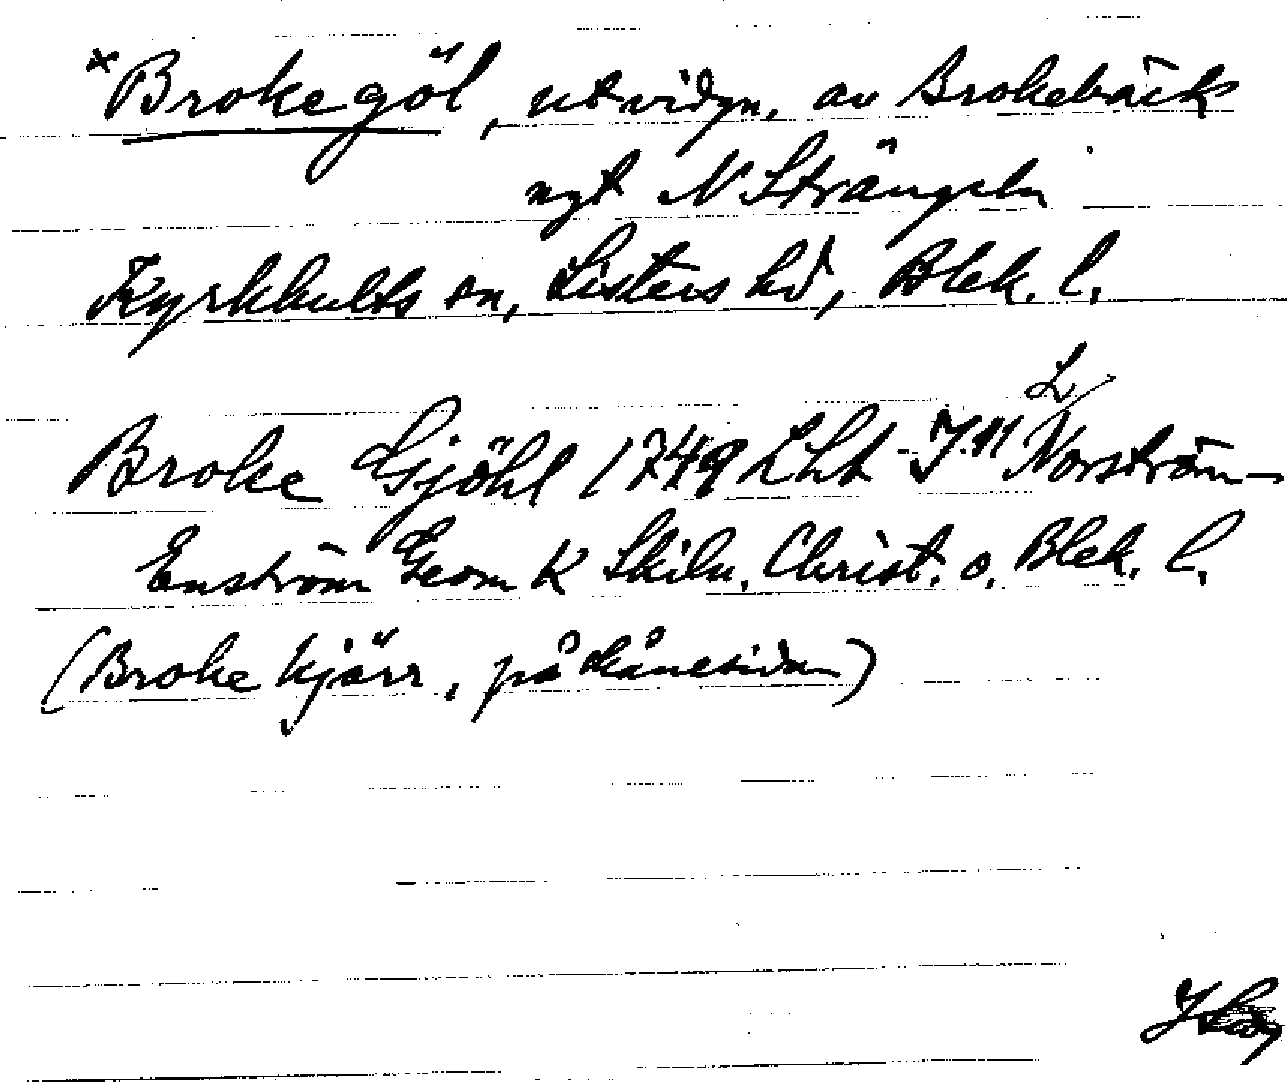 *Brokegöl, utvidgn. av Brokebäck
ngt N Strångeln
Kyrkhults sn, Listers hd, Blek. l.
L
Broke Gjöhl 1749 Lht J.M Norström-
Enström Geom K Skiln. Christ. o. Blek. l.
(Broke kjärr, på skånesidan)